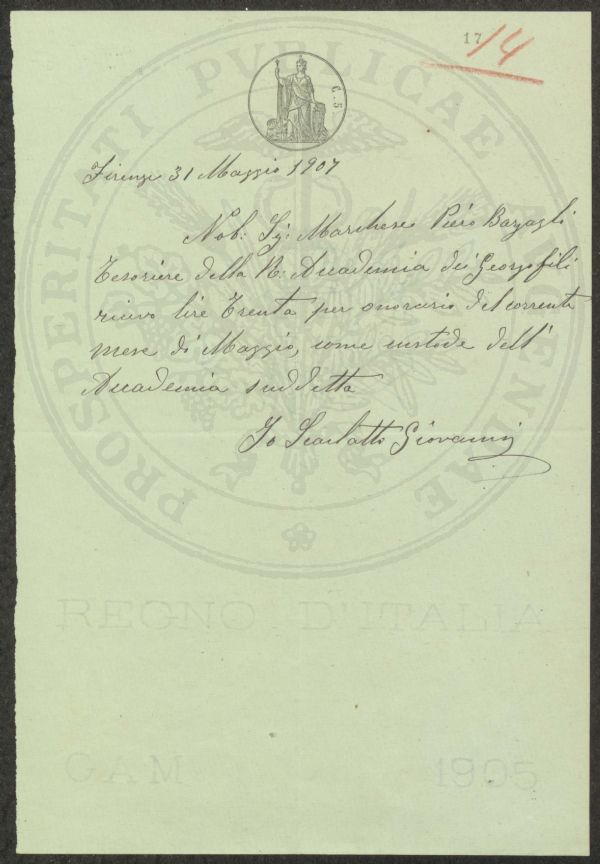 17/4
C. 5
Firenze 31 Maggio 1907
Nob: Sig: Marchese Piero Bargagli
Tesoriere della R: Accademia dei Georgofili
ricevo lire Trenta per onorario del corrente
mese di Maggio, come custode dell'
Accademia suddetta
Io Scarlatti Giovanni
PROSPERITATI PVBLICAE AVGENDAE
REGNO D'ITALIA
GAM 1905